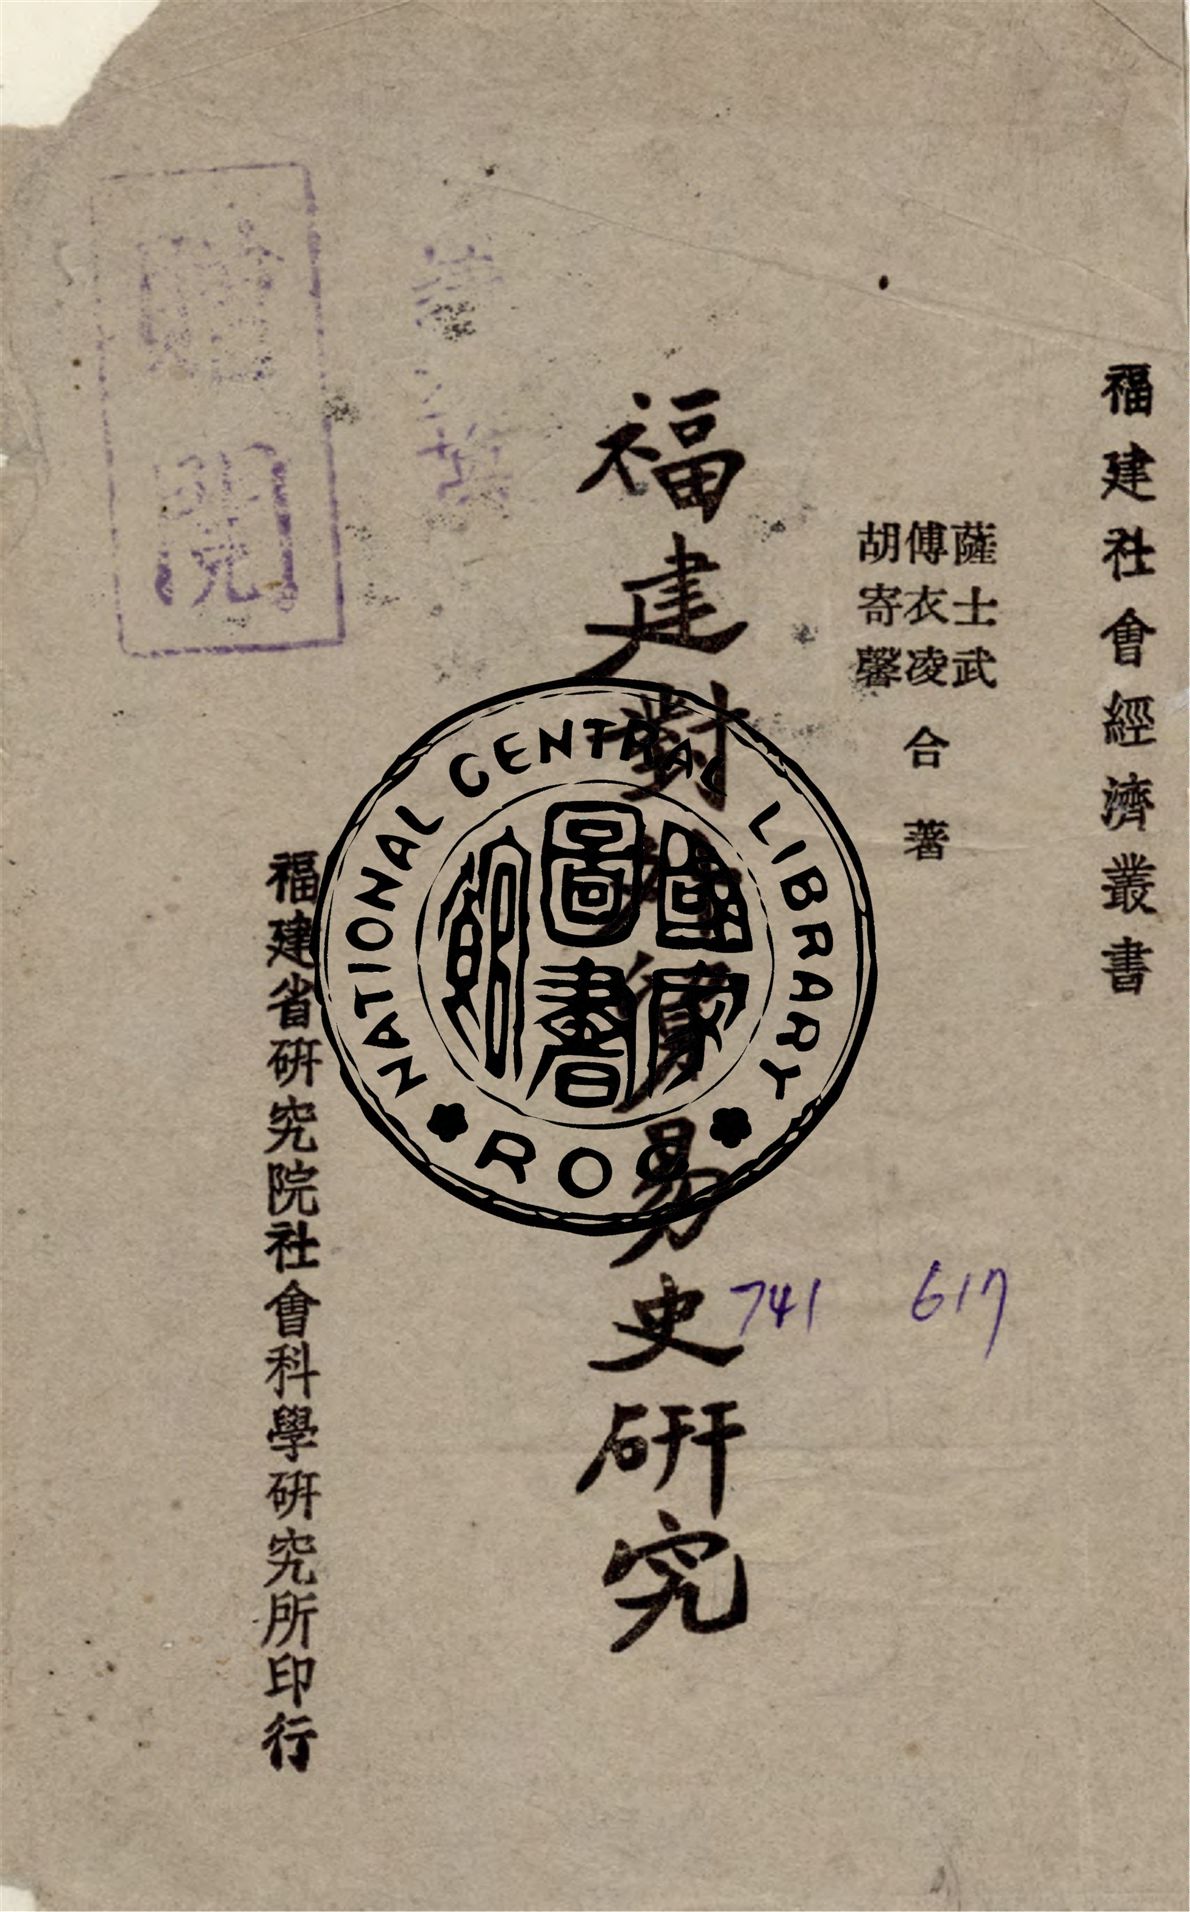 福建社會經濟叢書
薩士武
傅衣凌 合著
胡寄馨
福建對外貿易史研究
福建省研究院社會科學研究所印行
NATIONAL CENTRAL LIBRARY
ROC
國家
圖書
館
741 617